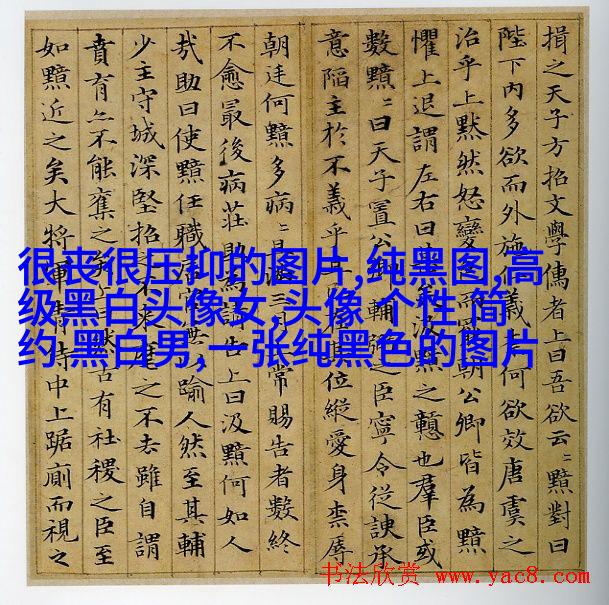 揖之天子方招文學儒者上曰吾欲云〻黯對曰
陛下內多欲而外施仁義何欲效唐虞之
治乎上黙然怒變色而罷朝公卿皆為黯
懼上退謂左右曰汲黯之戇也羣臣或
數黯〻曰天子置公卿輔弼之臣寧令從諛承
意陷主於不義乎在其位縱愛身柰辱
朝廷何黯多病〻且滿三月常賜告者數終
不愈最後病莊助為請告上曰汲黯何如人
哉助曰使黯任職居官無以踰人然至其輔
少主守城深堅招之不來麾之不去雖自謂
賁育亦不能奪之上曰然古有社稷之臣至
如黯近之矣大將軍青侍中上踞廁而視之
很丧很压抑的图片,纯黑图,高
级黑白头像女,头像 个性 简
约 黑白男,一张纯黑色的图片
书法欣赏 www.yac8.com